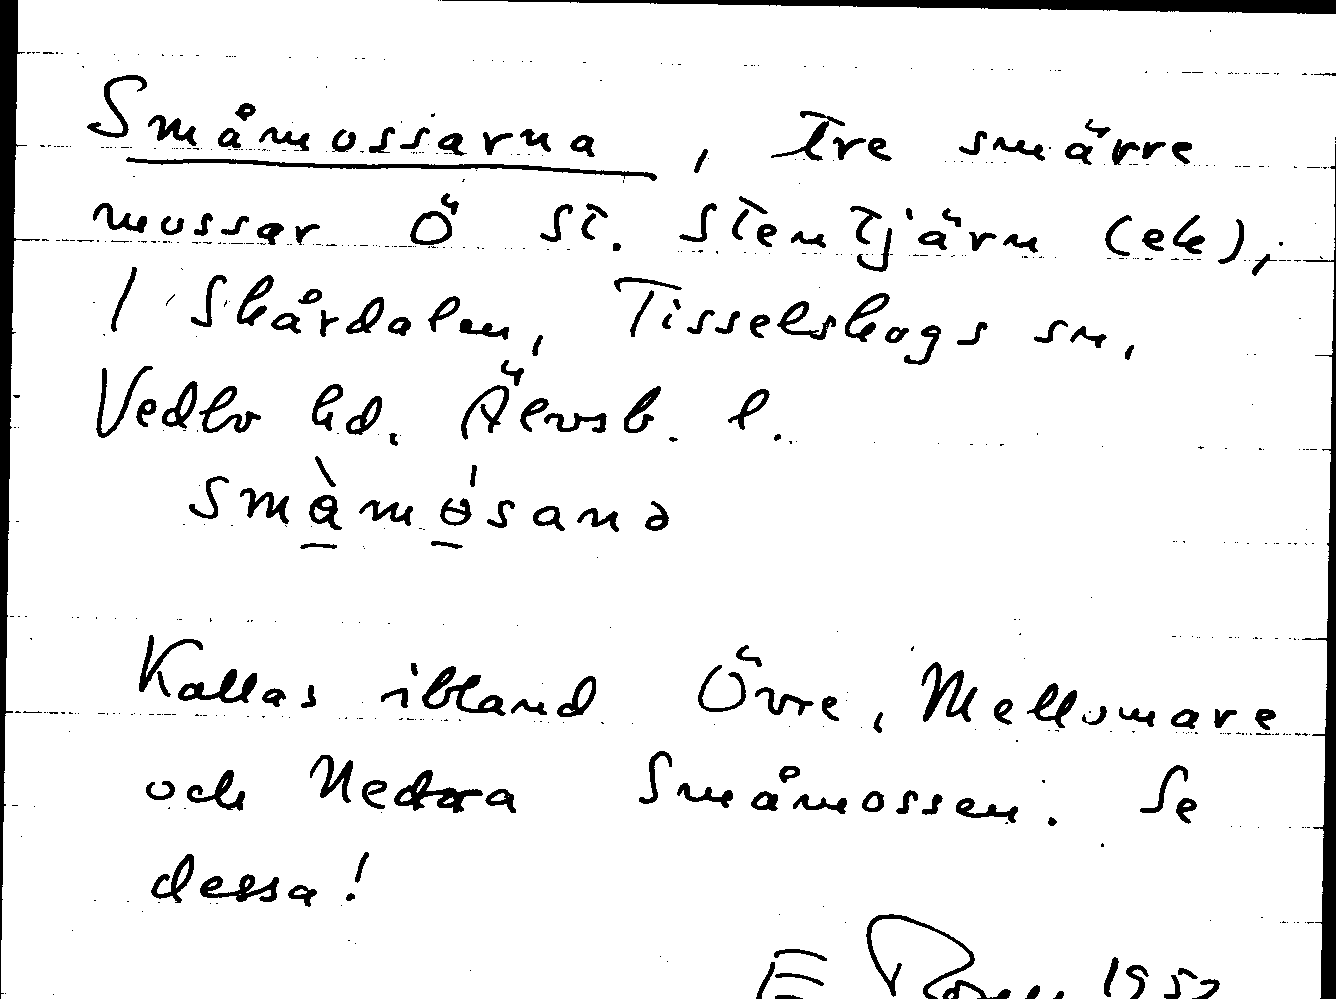 Småmossarna, tre smärre
mossar Ö St. Stentjärn (ek),
/ Skårdalen, Tisselskogs sn,
Vedbo hd. Älvsb. l.
smàmósanə
Kallas ibland Övre, Mellomare
och Nedra Småmossen. Se
dessa!
E 1952